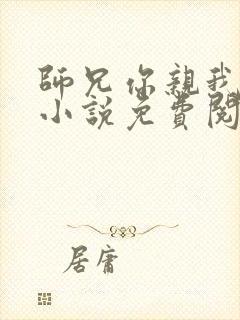 师兄你親我
小說免費閱
居庸